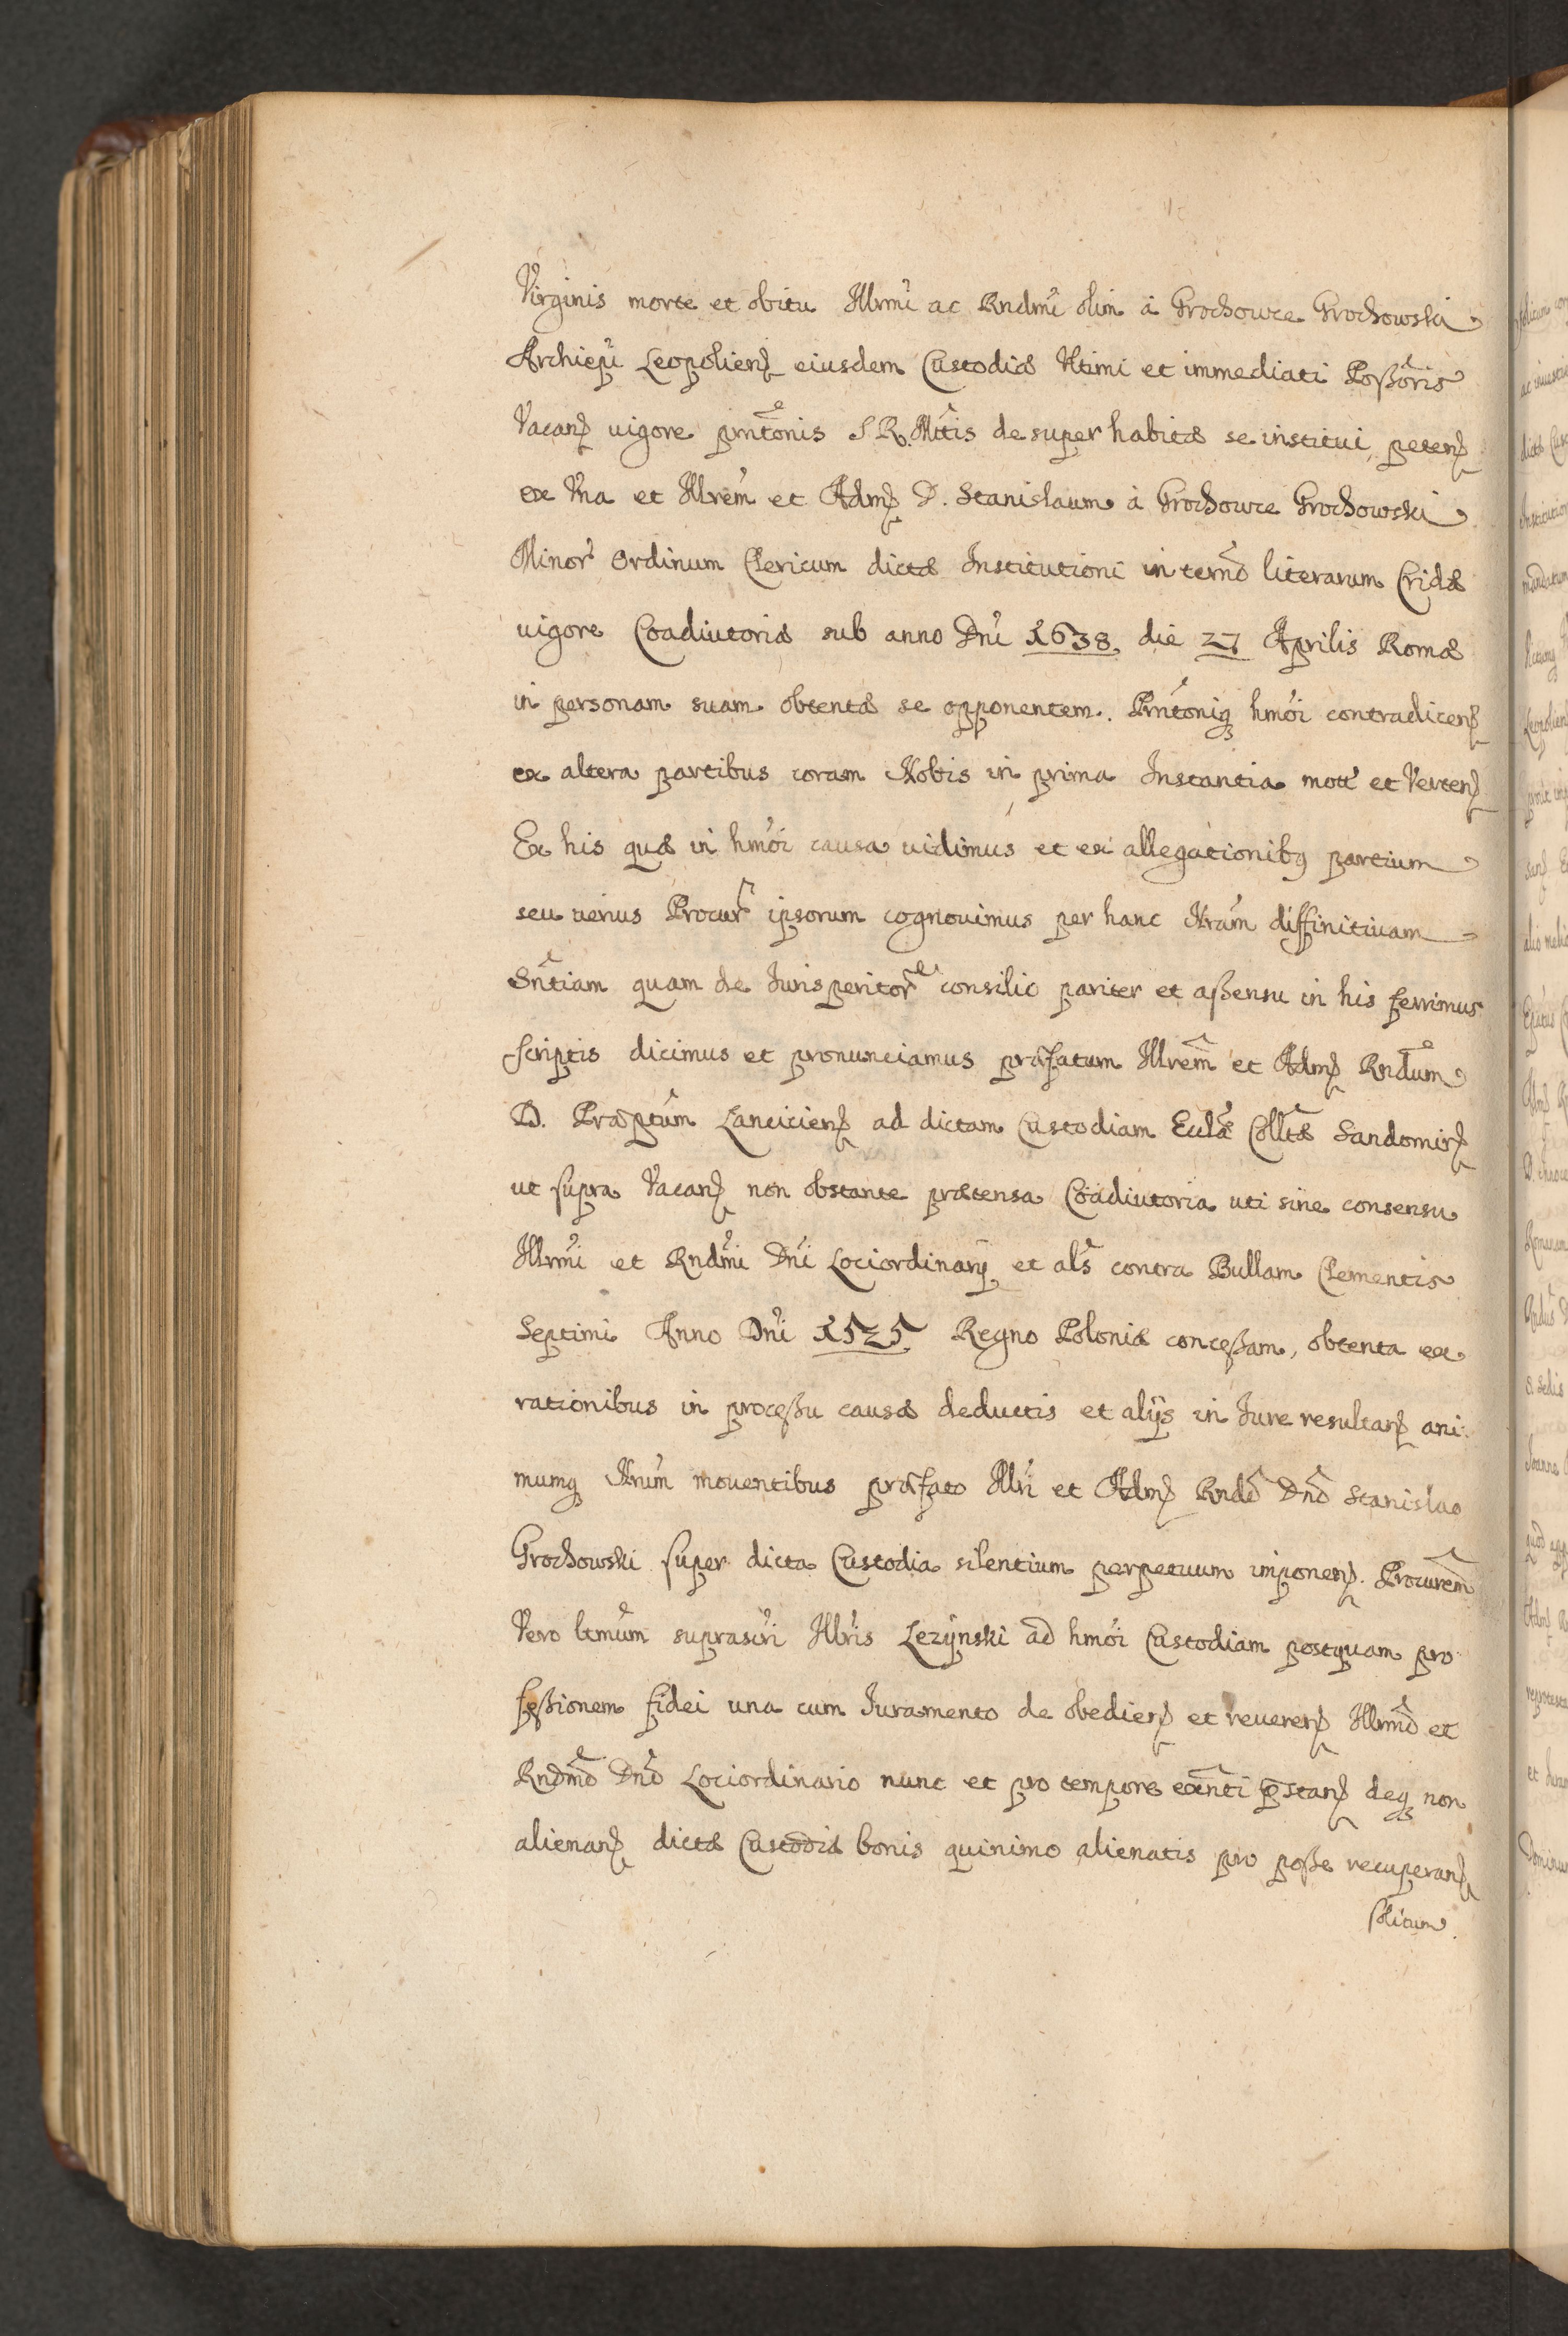 Virginis morte et obitu Illrmi ac Rndmi olim à Grochowce Grochowski
Archiepi Leopoliens eiusdem Custodiæ Vltimi et immediati Poßoris
Vacans uigore prntonis S. R. Mtis desuper habitæ se institui petens
ex Vna et Illrem et Adm D. Stanislaum à Grochowce Grochowski
Minor Ordinum Clericum dictæ Institutioni in termo literarum Cridæ
uigore Coadiutoriæ sub anno Dni 1638. die 27 Aprilis Romæ
in personam suam obtentæ se opponentem. Prntoniq hmoi contradicens
ex altera partibus coram Nobis in prima Instantia mott et Vertens
Ex his quæ in hmoi causa uidimus et ex allegationibq partium
seu uerius Procur ipsorum cognouimus per hanc Nram diffinitiuam
Sntiam quam de Jurisperitor consilio pariter et aßensu in his ferrimus
scriptis dicimus et pronunciamus præfatum Illrem et Adm Rndum
D. Præptum Lanciciens ad dictam Custodiam Eclæ Colltæ Sandomirs
ut supra Vacans non obstante prætensa Coadiutoria uti sine consensu
Illrmi et Rndmi Dni Lociordinarij et als contra Bullam Clementis
Septimi Anno Dni 1525 Regno Poloniæ conceßam, obtenta ex
rationibus in proceßu causæ deductis et alijs in Jure resultans ani:
mumq Nrum mouentibus præfato Illri et Adm Rndo Dno Stanislao
Grochowski super dicta Custodia silentium perpetuum imponens. Procurem
Vero ltmum suprascri Illris Lezynski ad hmoi Custodiam postquam pro
feßionem fidei una cum Juramento de obediens et reuerens Illrmo et
Rndmo Dno Lociordinario nunc et pro tempore exnti pstans deq non
alienans dictæ Custodiæ bonis quinimo alienatis pro poße recuperans
solitum